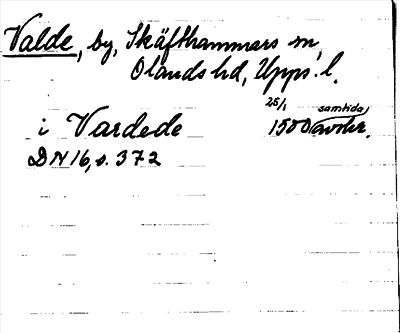 Valde, by, Skäfthammars sn,
Olands hd, Upps. l.
i Vardede 25/1 1500 samtida avskr.
DN 16, s. 372